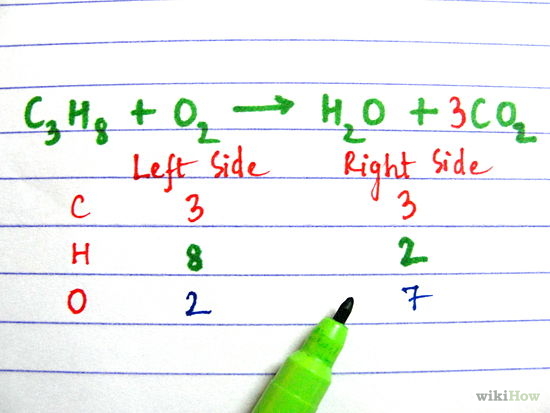 C₃H₈ + O₂ → H₂O + 3CO₂
Left Side Right Side
C 3 3
H 8 2
O 2 7
wikiHow